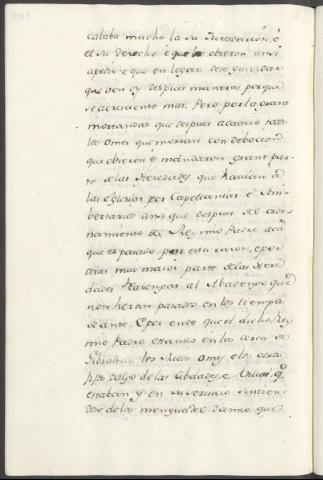 cataba mucho la su Jurisdicion, é
el su derecho é que lo obieron ansi
apedir é que en logar dese guardar
que ven oy despues manera porque
se acresciente mas. Pero por la grant
mortandat que despues acaecio todos
los omes que morian con debocion
que obieron é mandaron grant par-
te de las Heredades que havien á
las eglesias por Capellanias é Ani-
bersarios ansi que despues del orde-
namiento del Rey mio Padre acá
que es pasado por esta razon, é por
otras mui maior parte de las Here-
dades Realengas al Abadengo que
non heran pasadas en los tiempos
de ante. E por ende que el dicho Rey
mio Padre estando en la cerca de
Gibraltar los Ricos Omes é los otros
fijos dalgo de las Cibdades, é Villas, q.e
estaban y en su servicio sintien-
dose de los menguas del danno que